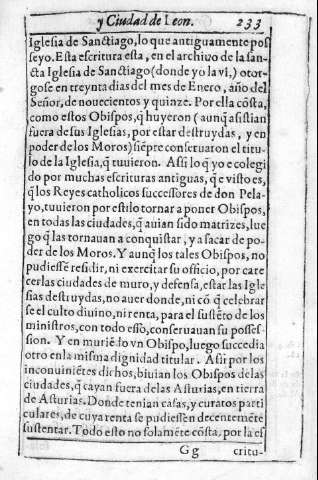 y Ciudad de Leon. 233
Iglesia de Sanctiago, lo que antiguamente pos
seyo. Esta escritura esta, en el archivo de la san-
cta Iglesia de Sanctiago (donde yo la vi,) otor-
gose en treynta dias del mes de Enero, año del
Señor, de nouecientos y quinze. Por ella cõsta,
como estos Obispos, q̃ huyeron (aunq̃ asistian
fuera de sus Iglesias, por estar destruydas, y en
poder de los Moros) siẽpre conseruaron el titu-
lo de la Iglesia, q̃ tuuieron. Assi lo q̃ yo e colegi
do por muchas escrituras antiguas, que e visto es,
q̃ los Reyes catholicos successores de don Pela-
yo, tuuieron por estilo tornar a poner Obispos,
en todas las ciudades, q̃ auian sido matrizes, lue
go q̃ las tornauan a conquistar, y a sacar de po-
der de los Moros. Y aunq̃ los tales Obispos, no
pudiessẽ residir, ni exercitar su officio, por care
cer las ciudades de muro, y defensa, estar las Igle
sias destruydas, no auer donde, ni cõ q̃ celebrar
se el culto diuino, ni renta, para el sustẽto de los
ministros, con todo esso, conseruauan su posses-
sion. Y en muriẽdo vn Obispo, luego succedia
otro en la misma dignidad titular. Assi por los
inconuiniẽtes dichos, biuian los Obispos de las
ciudades, q̃ cayan fuera de las Asturias, en tierra
de Asturias. Donde tenian casas, y curatos parti
culares, de cuya renta se pudiessẽn decentemẽte
sustentar. Todo esto no solamẽte cõsta, por la es
Gg critu-